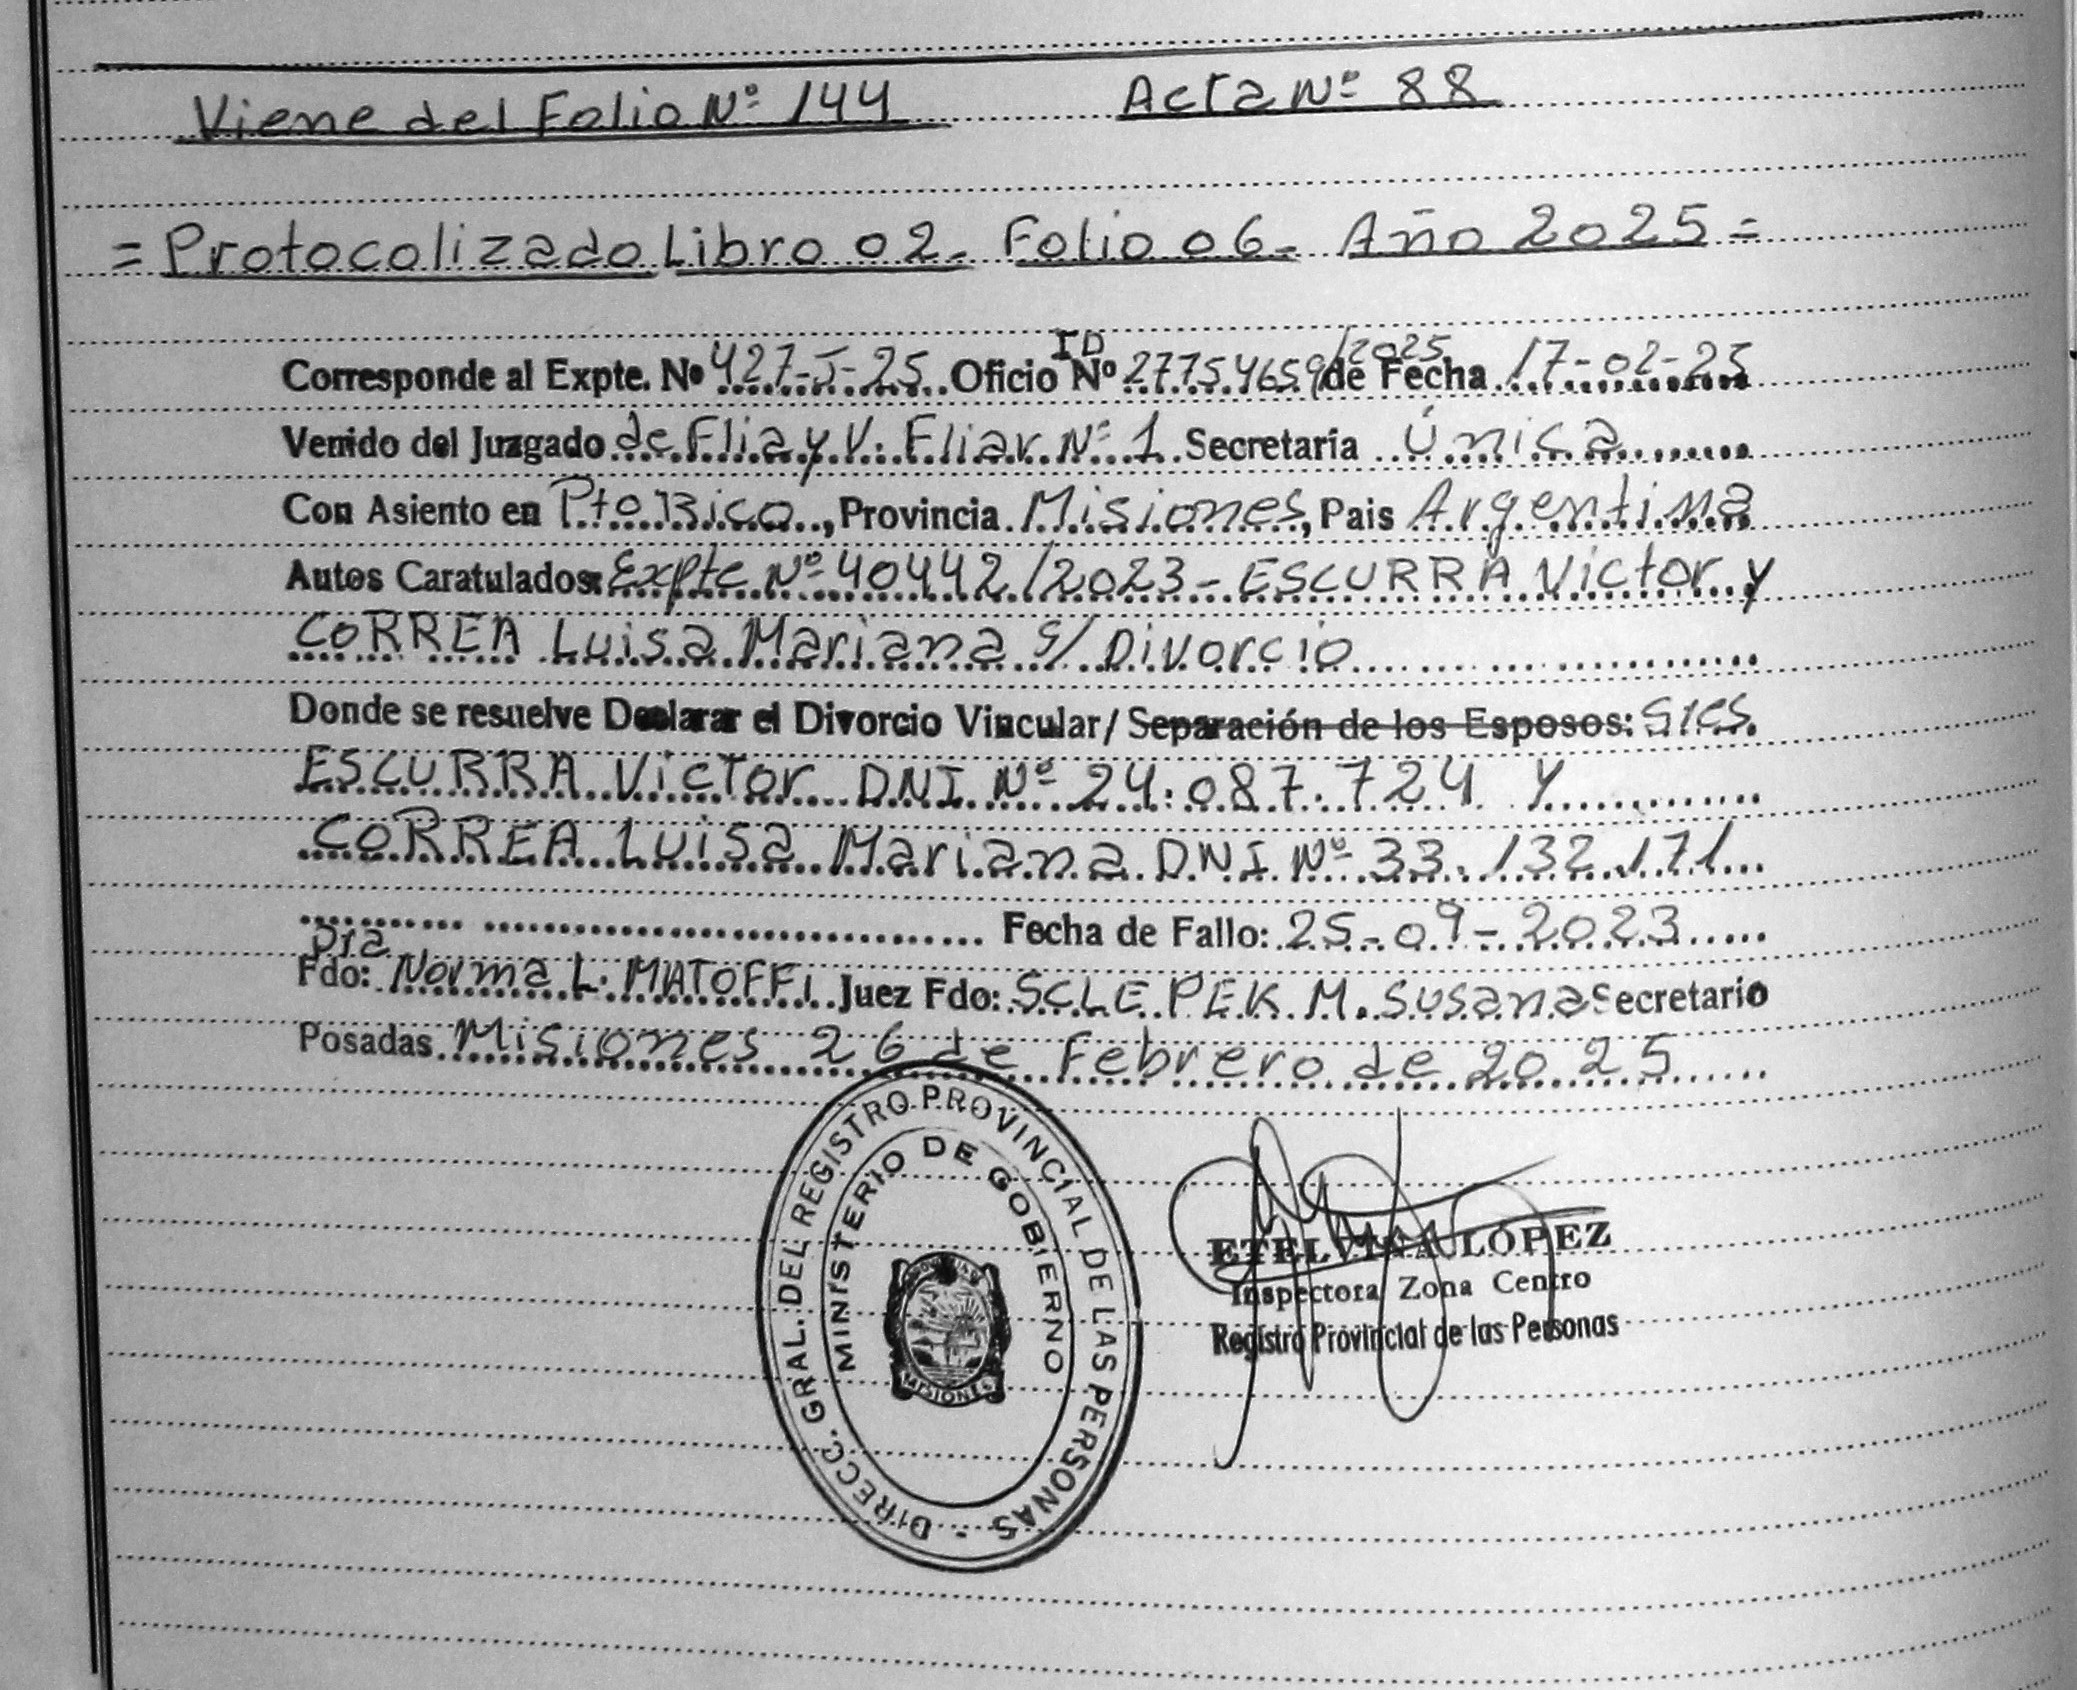 Viene del Folio Nº 144 Acta Nº 88
= Protocolizado Libro 02. Folio 06. Año 2025 =
Corresponde al Expte. Nº 427-J-25 Oficio ID Nº 27754659/2025 de Fecha 17-02-25
Venido del Juzgado de Flia y V. Fliar Nº 1 Secretaría Única
Con Asiento en Pto Rico, Provincia Misiones, Pais Argentina
Autos Caratulados: Expte Nº 40442/2023 - ESCURRA Victor y
CORREA Luisa Mariana s/ Divorcio
Donde se resuelve Declarar el Divorcio Vincular/ Separación de los Esposos: Sres.
ESCURRA Victor DNI Nº 24.087.724 y
CORREA Luisa Mariana DNI Nº 33.132.171
Fecha de Fallo: 25-09-2023
Fdo: Dra Norma L. MATOFFI Juez Fdo: SCLEPEK M. Susana Secretario
Posadas Misiones 26 de Febrero de 2025
DIRECC. GRAL. DEL REGISTRO PROVINCIAL DE LAS PERSONAS -
MINISTERIO DE GOBIERNO
MISIONES
ETELVINA LÓPEZ
Inspectora Zona Centro
Registro Provincial de las Personas